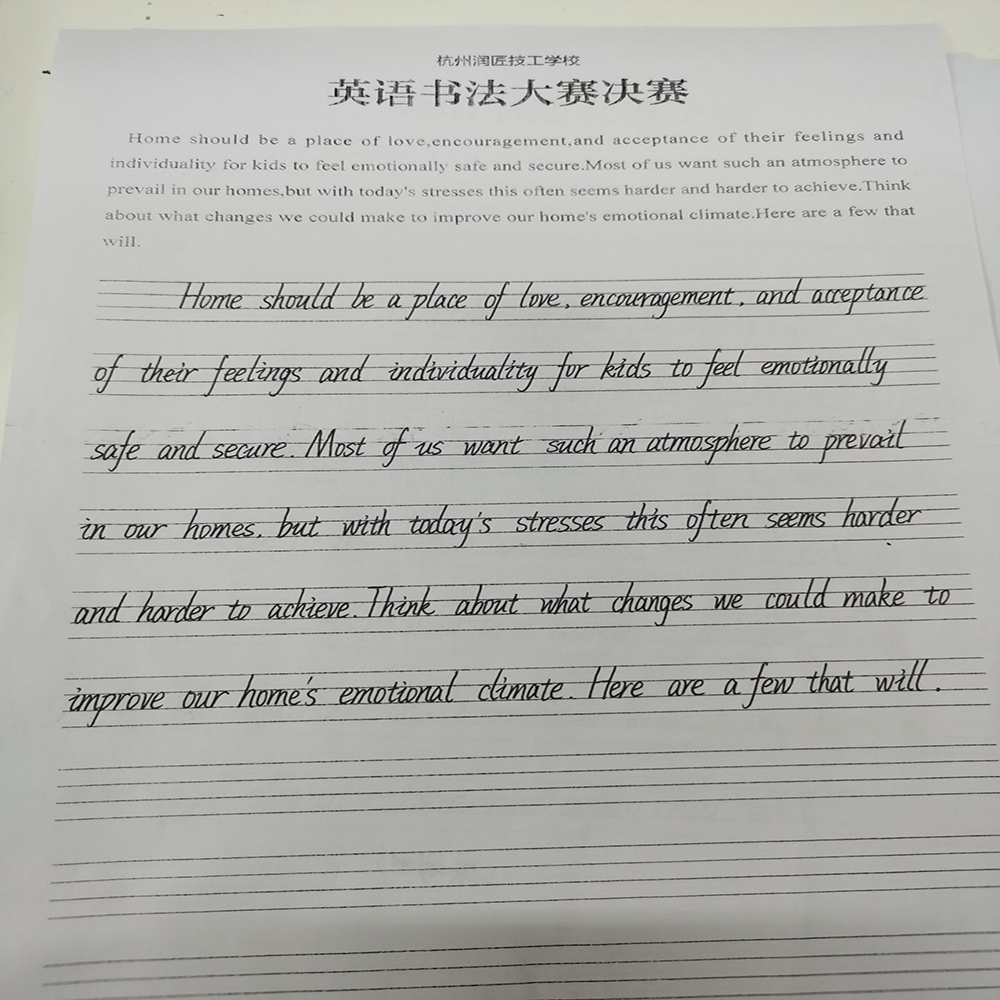 杭州润匠技工学校
英语书法大赛决赛
Home should be a place of love,encouragement,and acceptance of their feelings and
individuality for kids to feel emotionally safe and secure.Most of us want such an atmosphere to
prevail in our homes,but with today's stresses this often seems harder and harder to achieve.Think
about what changes we could make to improve our home's emotional climate.Here are a few that
will.
Home should be a place of love, encouragement, and acceptance
of their feelings and individuality for kids to feel emotionally
safe and secure. Most of us want such an atmosphere to prevail
in our homes, but with today's stresses this often seems harder
and harder to achieve. Think about what changes we could make to
improve our home's emotional climate. Here are a few that will.